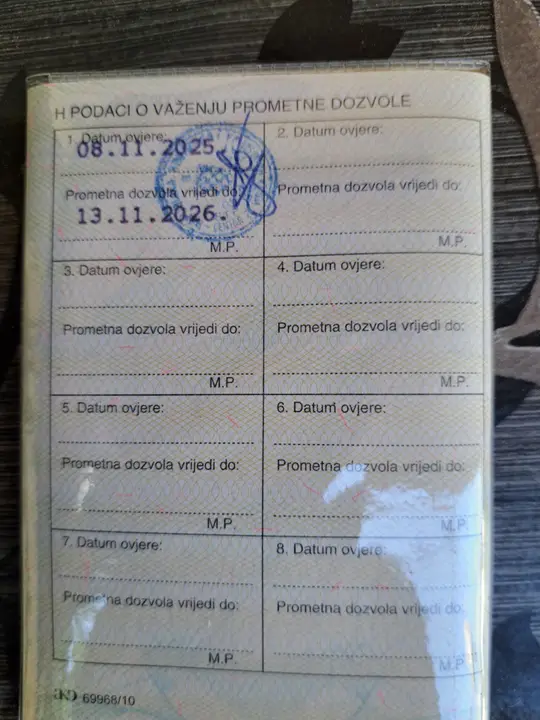 H PODACI O VAŽENJU PROMETNE DOZVOLE
1. Datum ovjere:
08.11.2025.
Prometna dozvola vrijedi do:
13.11.2026.
M.P.
2. Datum ovjere:
Prometna dozvola vrijedi do:
M.P.
3. Datum ovjere:
Prometna dozvola vrijedi do:
M.P.
4. Datum ovjere:
Prometna dozvola vrijedi do:
M.P.
5. Datum ovjere:
Prometna dozvola vrijedi do:
M.P.
6. Datum ovjere:
Prometna dozvola vrijedi do:
M.P.
7. Datum ovjere:
Prometna dozvola vrijedi do:
M.P.
8. Datum ovjere:
Prometna dozvola vrijedi do:
M.P.
AKD 69968/10